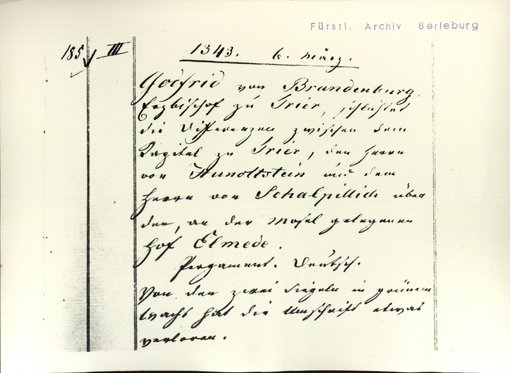 Fürstl. Archiv Berleburg
185 III
1343. 6. März.
Gotfrid von Brandenburg,
Erzbischof zu Trier, schlichtet
die Differenzen zwischen dem
Kapitel zu Trier, den Herrn
von Hunoltstein und dem
Herrn von Schalpillich über
den, an der Mosel gelegenen
Hof Elmede.
Pergament. Deutsch.
Von den zwei Siegeln in grünem
Wachs hat die Umschrift etwas
verloren.